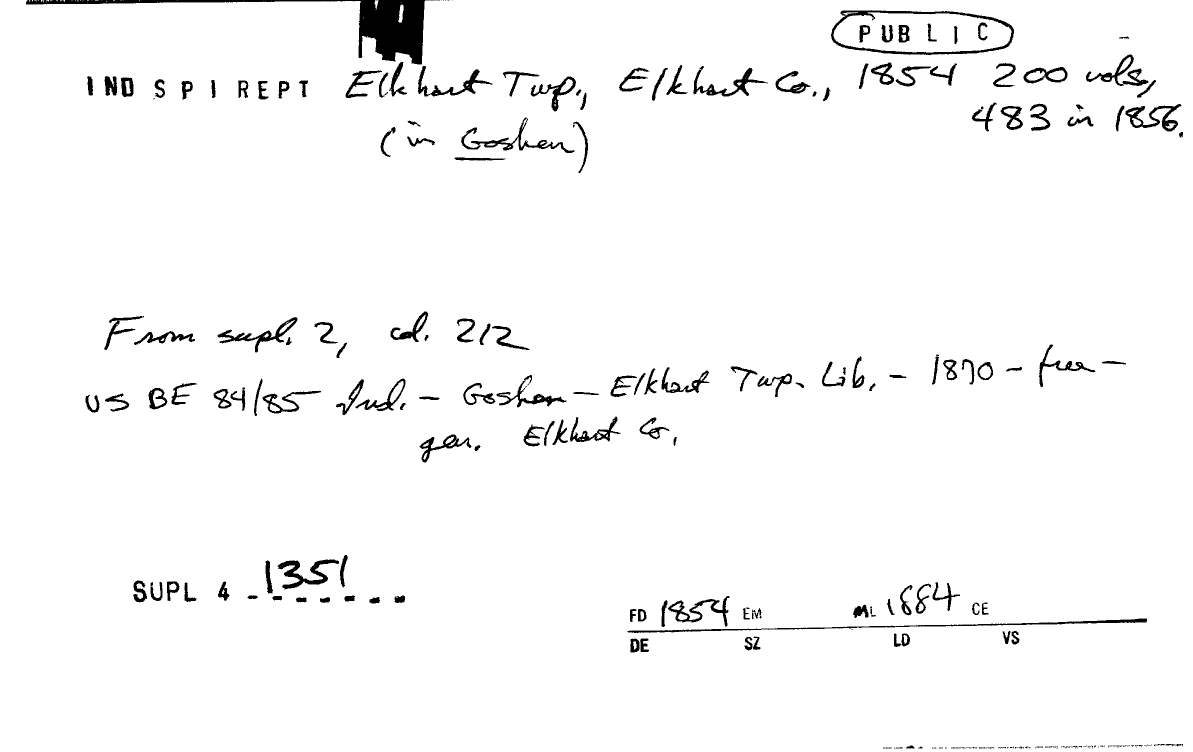 PUBLIC
IND SPI REPT Elkhart Twp., Elkhart Co., 1854 200 vols,
483 in 1856.
(in Goshen)
From supl. 2, col. 212
US BE 84/85 Ind. - Goshen - Elkhart Twp. Lib. - 1870 - free -
gen. Elkhart Co.
SUPL 4 1351
FD 1854 EM ML 1884 CE
DE SZ LD VS